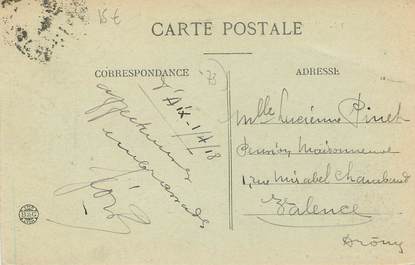 15€
CARTE POSTALE
CORRESPONDANCE
ADRESSE
d'Aix - 1/4/18
affectueuses
Mlle Lucienne Pinet
Pension Maisonneuve
1 rue Mirabel Chambaud
Valence
Drôme
B&G